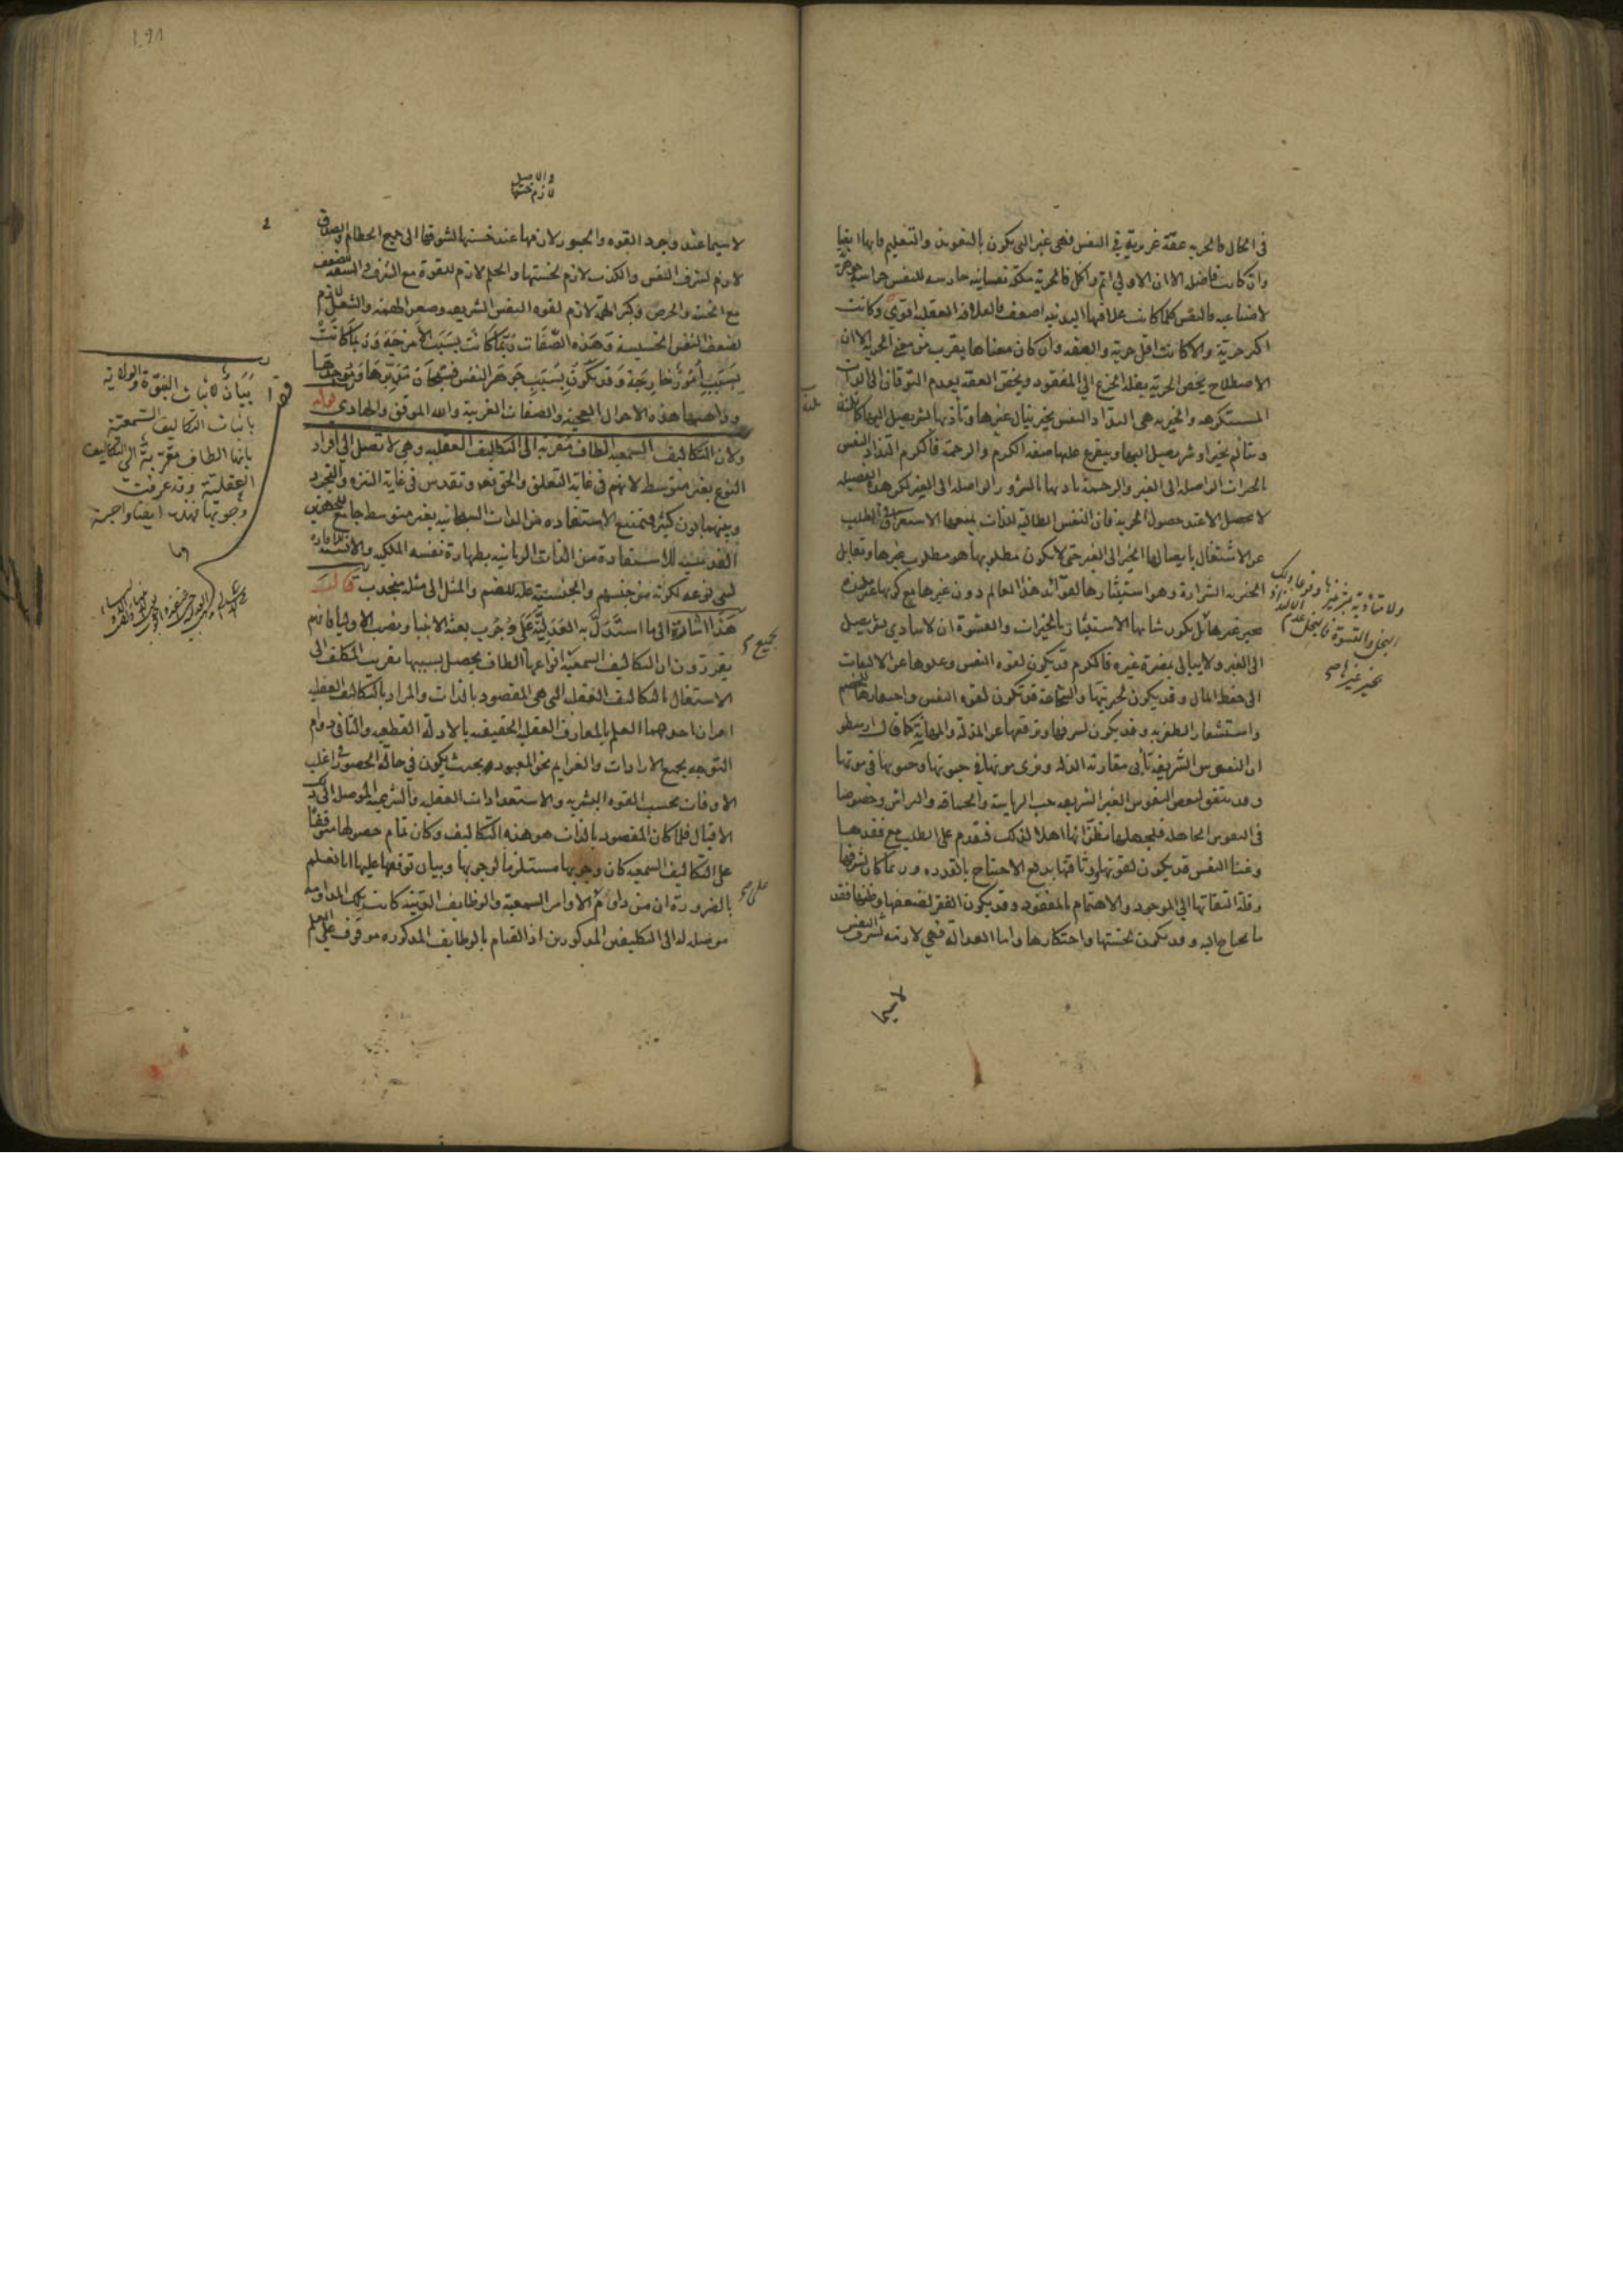 فى الحال فالحرية عفة غريزية فى النفس فهى غير التى يكون بالتعويد والتعليم فانها ايضا
وان كانت فاضله الا ان الاولى اتم واكمل فالحرية ملكة نفسانيه حارسه للنفس حراسة جوهرية
لا صناعيه فالنفس كلما كانت علاقتها البدنيه اضعف فالعلاقه العقليه اقوى وكانت
اكثر حرية والا كانت اقل حرية والعفه وان كان معناها يقرب من معنى الحرية الا ان
الاصطلاح يخص الحرية بقله الجزع الى المفقود ويخص العفه بعدم التوقان الى اللذات
المستكرهه والخيريه هى التذاذ النفس بخير ينال غيرها وتأذيها بشر يصل اليها كما تلتذ
وتتألم بخير او شر يصل اليها ويتفرع عليها صفه الكرم والرحمة فالكرم التذاذ النفس
بالخيرات الواصله الى الغير والرحمة تأذيها بالشرور الواصله الى الغير لكن هذه الفضيله
لا تحصل الا عند حصول الحرية فان النفس الطالبة للذات يمنعها الاستغراق فى الطلب
عن الاشتغال بايصالها الخير الى الغير حتى لا يكون مطلوبها هو مطلوب غيرها ويقابل
الخيريه الشرارة وهو استيثارها لفوائد هذا العالم دون غيرها مع كونها غير ملتذه
بخير غيرها بل يكون شانها الاستيثار بالخيرات والقسوة ان لا يتأذى بشر يصل
الى الغير ولا يبالى بمضرة غيره فالكرم قد يكون لقوه النفس وعلوها عن الالتفات
الى حفظ المال وقد يكون لخيريتها والشجاعة قد تكون لقوه النفس واحتقارها للخصم
واستشعار الظفر به وقد يكون لشرفها وترفعها عن المذلة والمهانة كما قال ارسطو
ان النفوس الشريفة تأبى مقارنة الذله وترى موتها فى حيوتها وحيوتها فى موتها
وقد يتفق لبعض النفوس الغير الشريفه حب الرياسة والحماقه والمراتب وخصوصا
فى النفوس الجاهله فلجهلها تظن انها اهلا لذلك فتقدم على الطلب مع فقدها
وغنا النفس قد يكون لقوتها ووثاقتها بدفع الاحتياج بالقدره وربما كان لشرفها
وقلة التفاتها الى الموجود والاهتمام بالمفقود وقد يكون الفقر لضعفها وظنها فقد
ما يحتاج اليه وقد يكون لخستها واحتكارها واما العدالة فهى لازمه لشرف النفس
لاسيما
بخير غيرها صح
١٠٩٨
لاسيما عند وجود القوه والجور لازمها عند خستها لشوقها الى جميع الحطام والصدق
لازم لشرف النفس والكذب لازم لخستها والحلم لازم للقوة مع الشرف والسفه للضعف
مع الخسه والحرص وكبر الهمة لازم لقوه النفس الشريفه وصغر الهمة والشغل لازم
لضعف النفس الخسيسة وهذه الصفات ربما كانت بسبب الامزجة وربما كانت
بسبب امور خارجة وقد يكون بسبب جوهر النفس فسبحان مدبرها وموجدها
وواهبها هذه الاحوال العجيبة والصفات الغريبة والله الموفق والهادى قوله
ولان التكاليف السمعية الطاف مقربة الى التكاليف العقليه وهى لا تصل الى افراد
النوع بغير متوسط لانهم فى غاية التعلق والحق تعالى وتقدس فى غاية التنزه والتجرد
وبينهما بون كثير فتمتنع الاستفاده من الذات السبحانيه بغير متوسط جامع للجهتين
القدسيه للاستفادة من الذات الربانيه بطهارة نفسه الملكيه والانسيه للافادة
لبنى نوعه لكونه من جنسهم والجنسية علة للضم والمثل الى مثله ينجذب قال
هذا اشارة الى ما استدل به العدلية على وجوب بعثه الانبيا ونصب الاوليا فانهم
يقررون ان التكاليف السمعيه انواعها الطاف يحصل بسببها تقريب المكلف الى
الاشتغال بالتكاليف العقليه التى هى المقصود بالذات والمراد بالتكاليف العقليه
امران احدهما العلم بالمعارف العقليه الحقيقيه بالادلة القطعيه والثانى دوام
التوجه بجميع الارادات والعزايم نحو المعبود بحيث يكون فى حالة الحضور فى اغلب
الاوقات بحسب القوه البشريه والاستعدادات العقليه والشرعيه الموصل الى ذلك
الاقبال فلما كان المقصود بالذات هو هذه التكاليف وكان تمام حصولها متوقفا
على التكاليف السمعيه كان وجوبها مستلزما لوجوبها وبيان توقفها عليها انا نعلم
بالضرورة ان من داوم الاوامر السمعية والوظايف الدينية كانت تلك المداومه
موصله له الى التكليفين المذكورين اذ القيام بالوظايف المذكوره موقوف على العلم
بيان لاثبات النبوة والولاية
باثبات التكاليف السمعية
بانها الطاف مقربة الى التكاليف
العقلية وقد عرفت
وجوبها فهذه ايضا واجبة